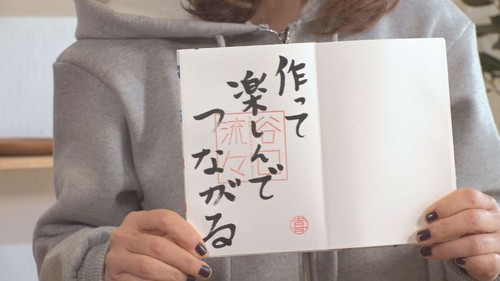 作って
楽しんで
つながる
谷口
流々
喜